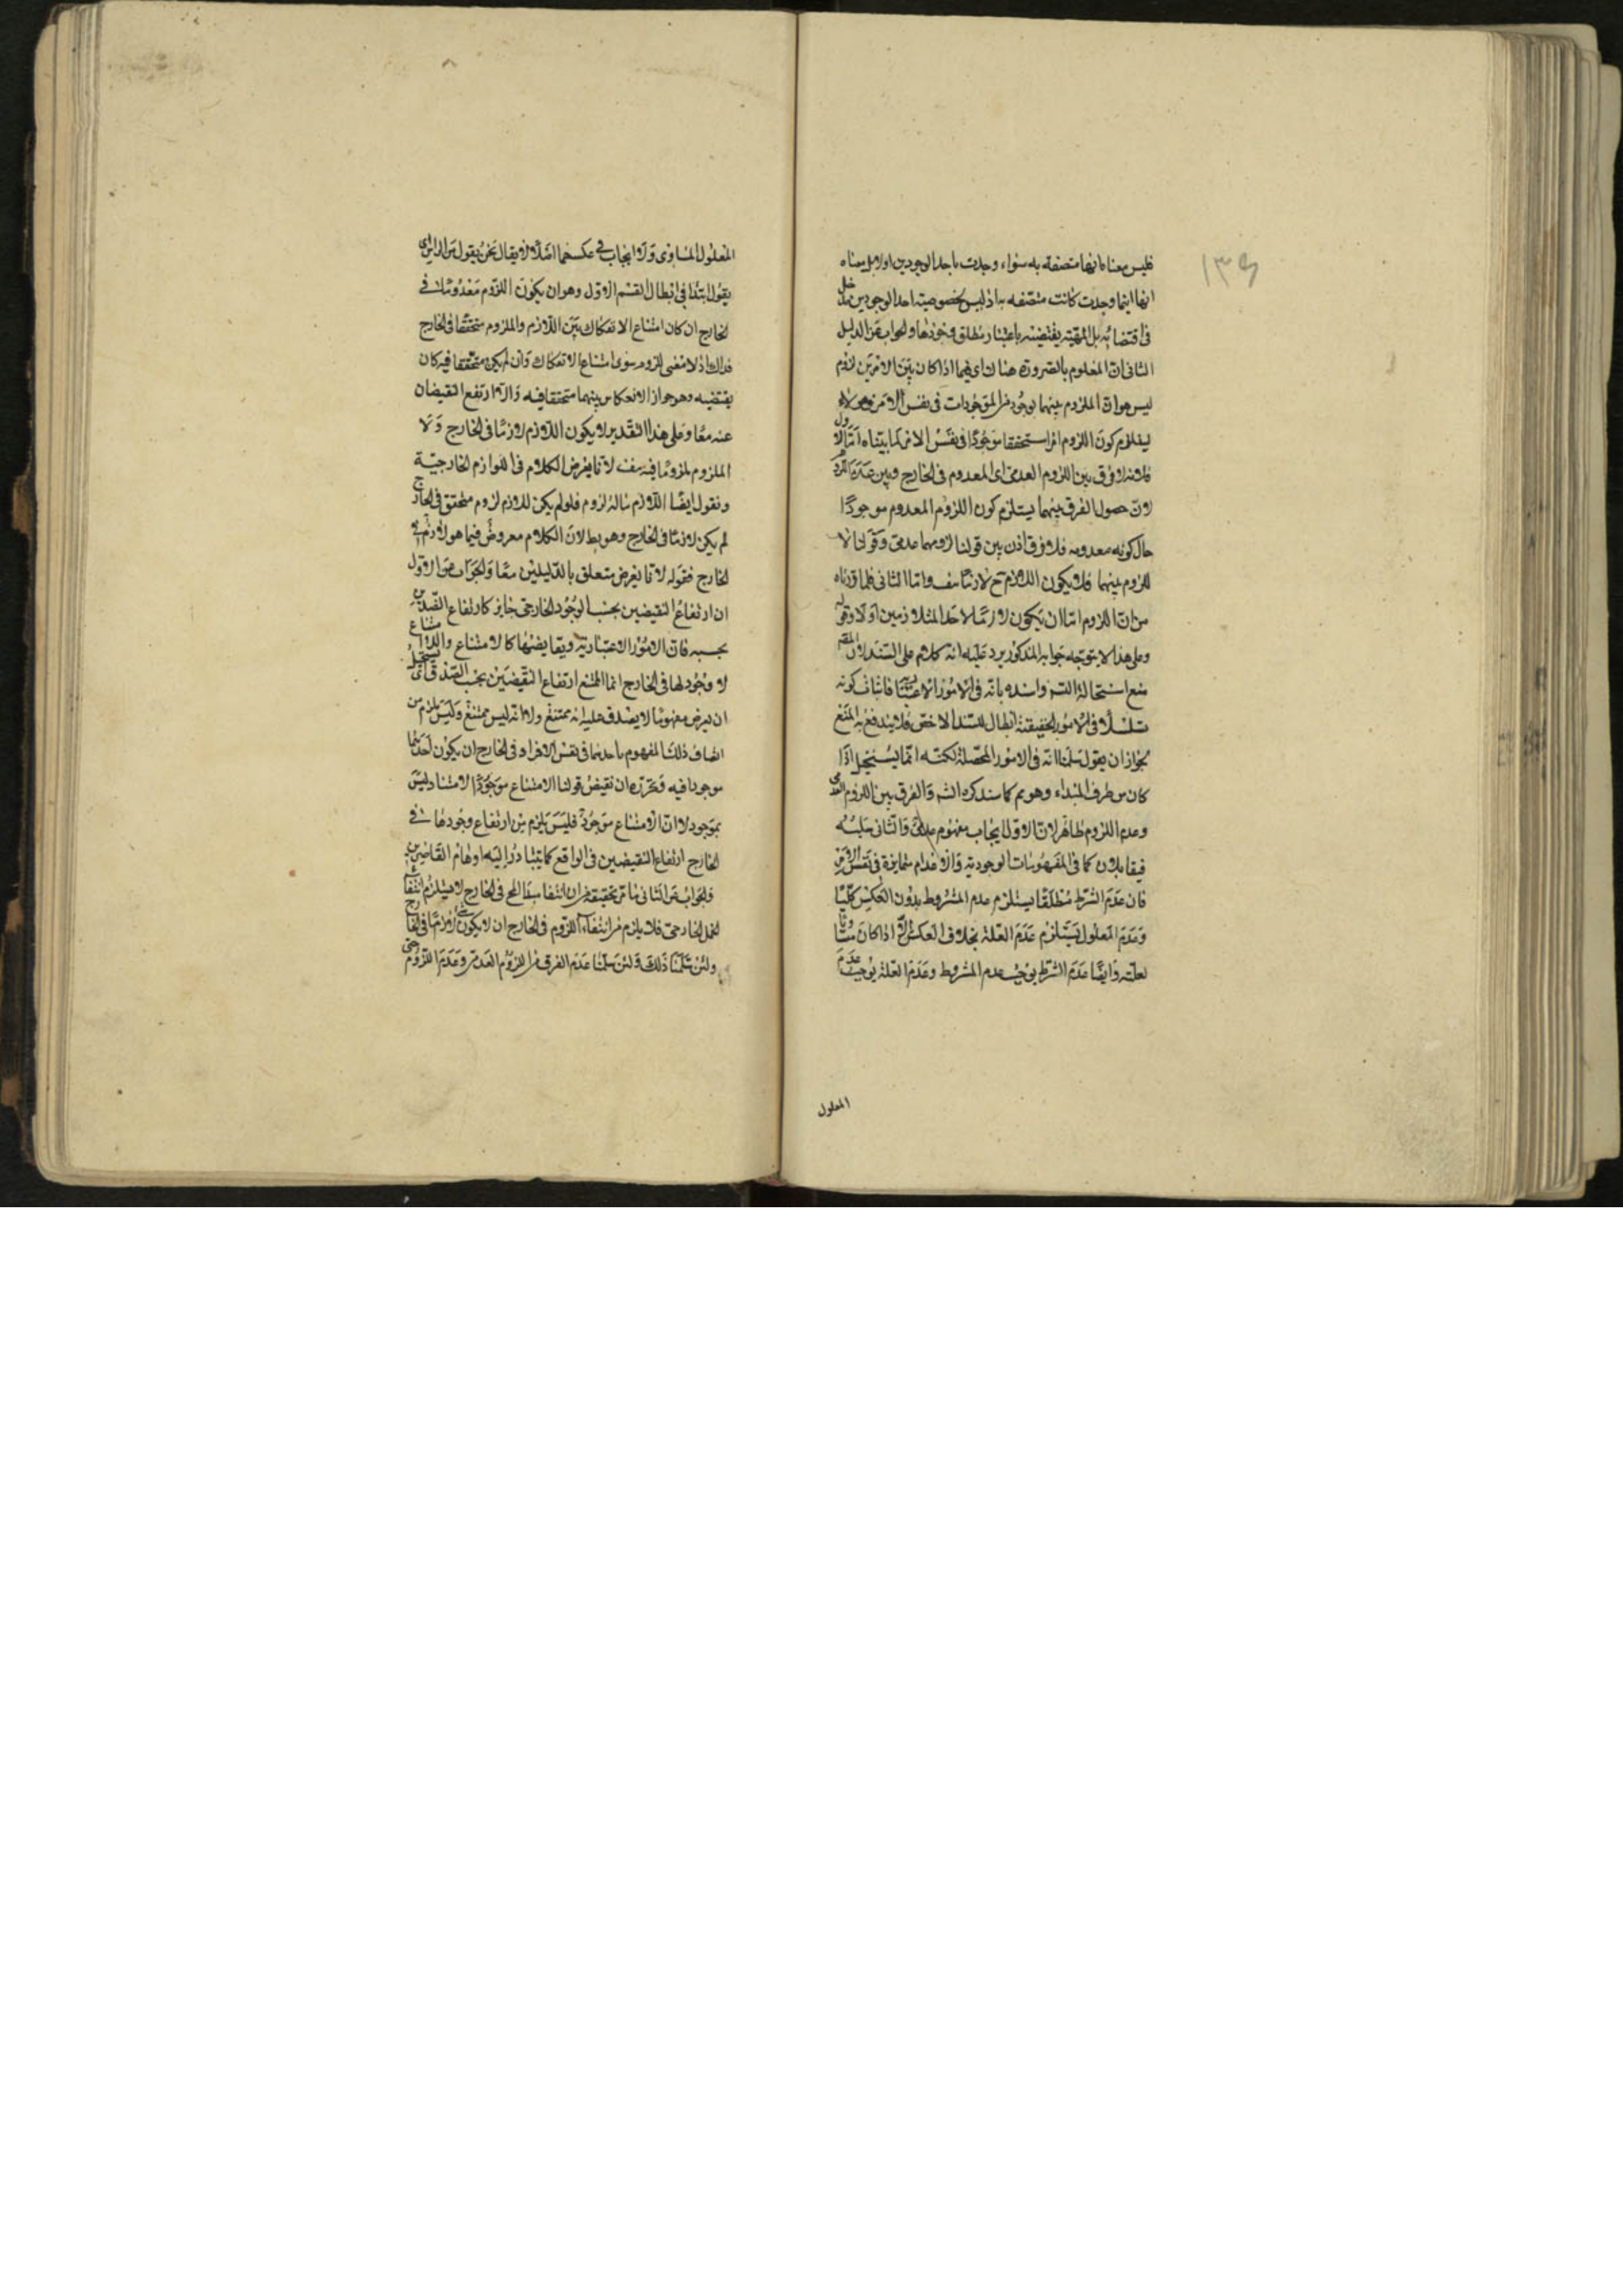 ١٣٩
فليس معناه انها متصفة به سواء وجدت باحد الوجودين اولا بل معناه
انها اينما وجدت كانت متصفه به اذ ليس لخصوصية احد الوجودين مدخل
فى اقتضائه بل المهيّة يقتضيه باعتبار مطلق وجودها والجواب عن الدليل
الثانى ان المعلوم بالضرورة هناك اى فيما اذا كان بين الامرين لزوم
ليس هو ان الملزوم بينهما موجود من الموجودات فى نفس الامر
ليلزم كون اللزوم امرا متحققا موجودًا فى نفس الامر لما بيّناه امّا الاول
فلانه لا فرق بين اللزوم العدمى اى المعدوم فى الخارج وبين عدم اللزوم
لان حصول الفرق بينهما يستلزم كون اللزوم المعدوم موجودًا
حال كونه معدوما فلا فرق اذن بين قولنا لزومهما عدمى وقولنا لا
لزوم بينهما فلا يكون اللازم ح لازمًا هف واما الثانى فلما قررناه
من ان اللزوم اما ان يكون لازمًا لاحد المتلازمين اولا وقوله
وعلى هذا لا يتوجه جوابه المذكور يرد عليه انه كلام على السند لان المقصّم
منع استحالة التس واسنده بانه فى الامور الاعتبارية فاثبات كونه
تسلسلًا فى الامور الحقيقية ابطال للسند الاخص فلا يندفع به المنع
لجواز ان يقول سلمنا انه فى الامور المحصلة لكنه انما يستحيل اذا
كان من طرف المبداء وهو مم كما سنذكره الشم والفرق بين اللزوم العدمى
وعدم اللزوم ظاهر لان الاول ايجاب مفهوم عدمى والثانى سلبه
فيقابلان كما فى المفهومات الوجودية والاعدام متمايزة فى نفس الامر
فان عدم الشرط مطلقًا يستلزم عدم المشروط بدون العكس كليًا
وعدم المعلول يستلزم عدم العلة بخلاف العكس الا اذا كان مساويا
لعلته وايضًا عدم الشرط يوجب عدم المشروط وعدم العلة يوجب عدم
المعلول
المعلول المساوى ولا ايجاب فى عكسهما اصلًا لا يقال نحن يقول من الراس
يقول ابتدا فى ابطال القسم الاول وهو ان يكون اللزوم معدومًا فى
الخارج ان كان امتناع الانفكاك بين اللازم والملزوم متحققًا فى الخارج
فذاك اذ لا معنى للزوم سوى امتناع الانفكاك وان لم يكن متحققا فيه كان
نقيضه وهو جواز الانعكاس بينهما متحققا فيه والا ارتفع النقيضان
عنه معًا وعلى هذا التقدير لا يكون اللازم لازمًا فى الخارج ولا
الملزوم ملزومًا فيه هف لانا نفرض الكلام فى اللوازم الخارجيّة
ونقول ايضًا اللازم ماله لزوم فلو لم يكن للازم لزوم متحقق فى الخارج
لم يكن لازمًا فى الخارج وهو بط لان الكلام مفروض فيما هو لازم فى
الخارج فقوله لانا نفرض متعلق بالدليلين معًا والجواب عن الاول
ان ارتفاع النقيضين بحسب الوجود الخارجى جايز كارتفاع الضدين
بحسبه فان الامور الاعتبارية ونقايضها كالامتناع واللاامتناع
لا وجود لها فى الخارج انما الممتنع ارتفاع النقيضين بحسب الصدق اى يستحيل
ان يعرض مفهومًا لا يصدق عليه انه ممتنع ولا انه ليس ممتنع وليس يلزم من
اتصاف ذلك المفهوم باحدهما فى نفس الامر او فى الخارج ان يكون احدهما
موجودا فيه وتحرره ان نقيض قولنا الامتناع موجود الامتناع ليس
بموجود لا ان لا امتناع موجود فليس يلزم من ارتفاع وجودهما فى
الخارج ارتفاع النقيضين فى الواقع كما يتبادر اليه اوهام القاصرين
والجواب عن الثانى ما مر تحقيقه من ان انتفا مبدا المح فى الخارج لا يستلزم انتفاء
الحمل الخارجى فلا يلزم من انتفاء اللزوم فى الخارج ان لا يكون شئ لازمًا فى الخارج
ولئن سلمنا ذلك ولئن سلمنا عدم الفرق من اللزوم العدمى وعدم اللزوم حتى